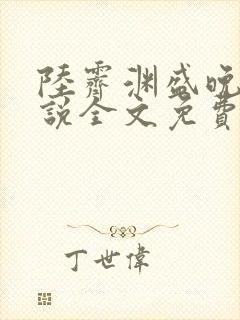 陸霽渊盛晚
説全文免費
丁世偉